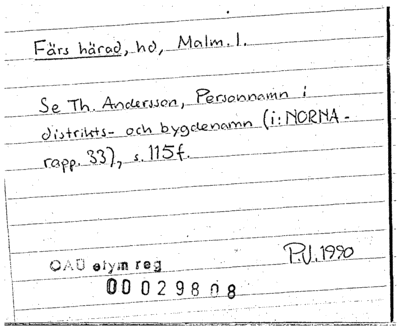 Färs härad, hd, Malm. l.
Se Th. Andersson, Personnamn i
distrikts- och bygdenamn (i: NORNA-
rapp. 33), s. 115f.
OAU etym reg
P.V. 1990
00029808